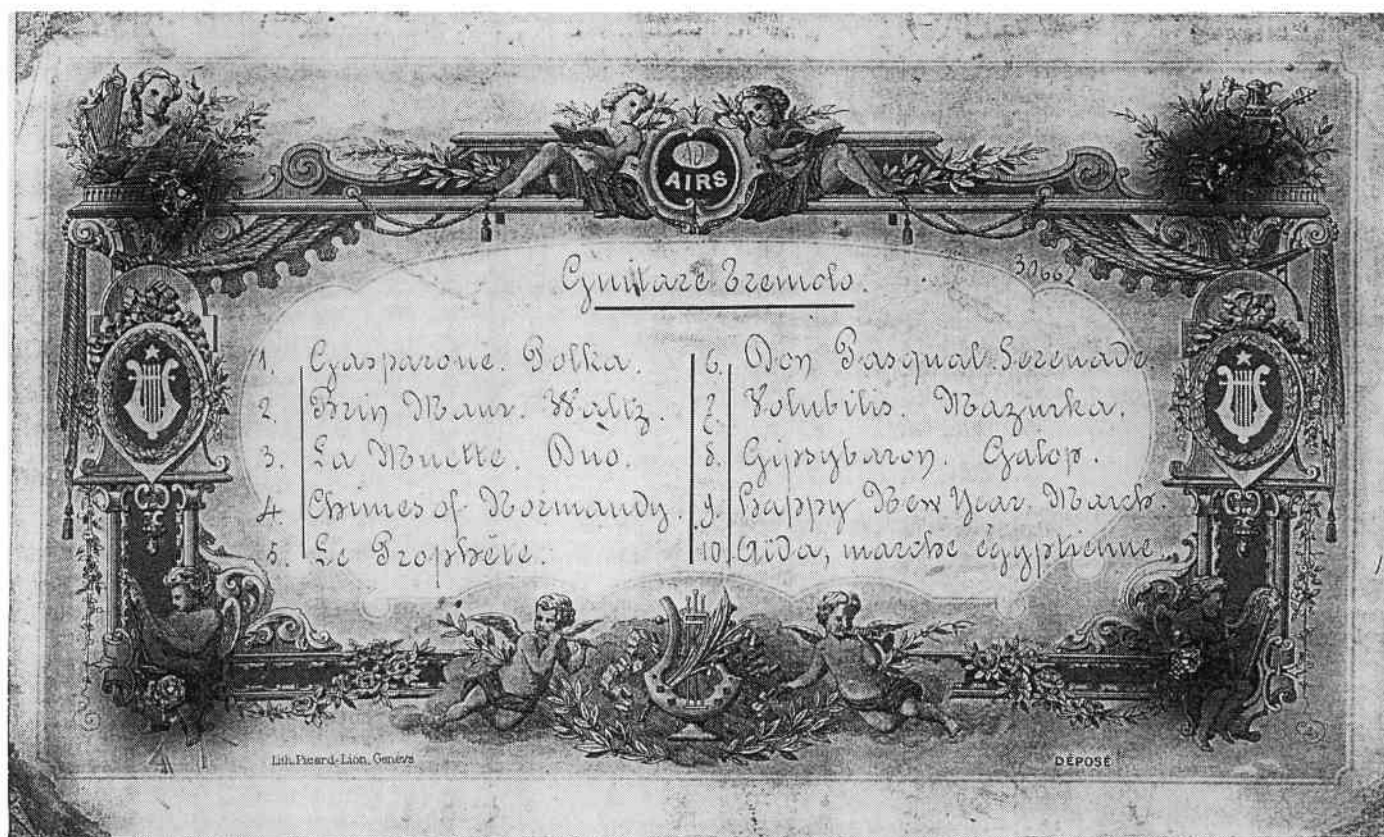 10
AIRS
Guitare Tremolo.
31662
1. Gasparone. Polka.
2. Prin Maur. Waltz.
3. La Muette. Duo.
4. Chimes of Normandy.
5. Le Prophète.
6. Don Pasqual. Serenade.
7. Volubilis. Mazurka.
8. Gipsybaron. Galop.
9. Happy New Year. March.
10. Aïda, marche égyptienne.
Lith. Picard-Lion, Genève
DÉPOSÉ